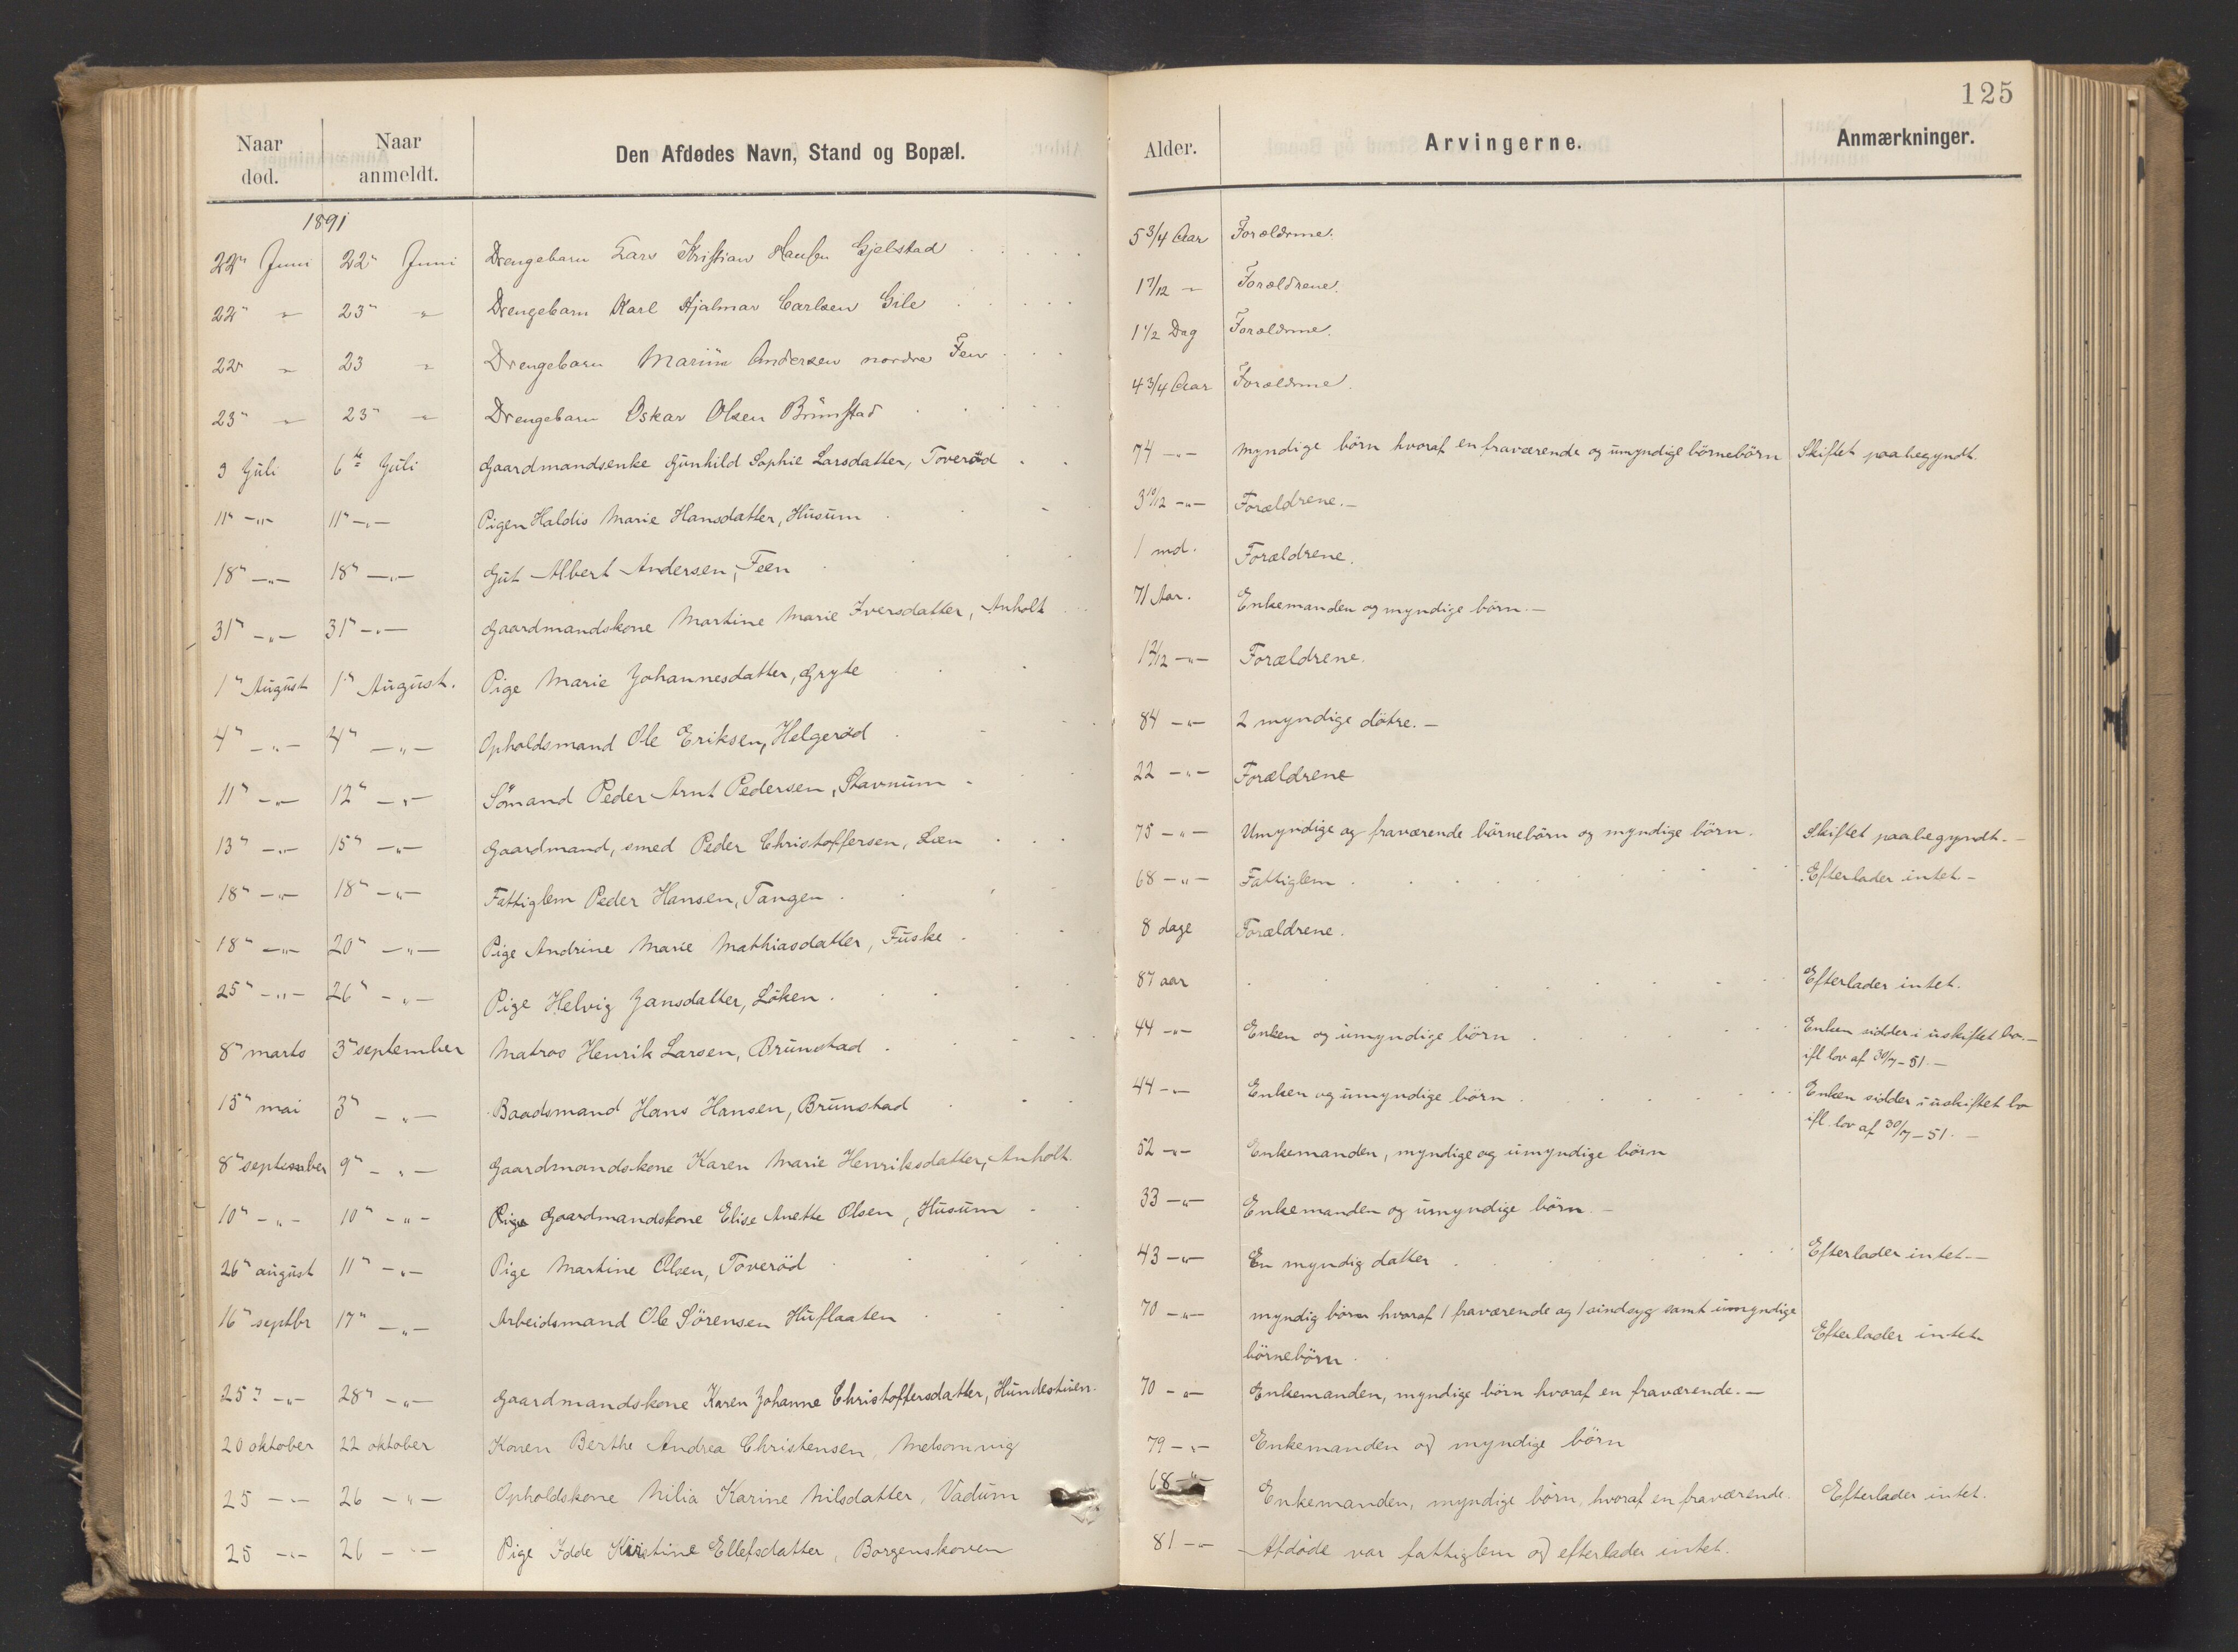 125
Naar død. Naar anmeldt. Den Afdødes Navn, Stand og Bopæl. Alder. Arvingerne. Anmærkninger.
1891
22" Juni 22" Juni Drengebarn Lars Kristian Hansen Gjelstad 5 3/4 Aar Forældrene.
22" " 23" " Drengebarn Karl Hjalmar Carlsen Gile 1 7/12 " Forældrene.
22" " 23 " Drengebarn Marius Andersen nordre Fen 1 1/2 Dag Forældrene.
23" " 23" " Drengebarn Oskar Olsen Brunstad 4 3/4 Aar Forældrene.
3 Juli 6te Juli Gaardmandsenke Gunhild Sophie Larsdatter, Toverød 74 -"- Myndige børn hvoraf en fraværende og umyndige børnebørn Skiftet paabegyndt.
11" -"- 11" -"- Pigen Haldis Marie Hansdatter, Husum 3 10/12 -"- Forældrene.-
18" -"- 18" -"- Gut Albert Andersen, Feen 1 md. Forældrene.
31" -"- 31" -"- Gaardmandskone Martine Marie Iversdatter, Anholt 71 Aar. Enkemanden og myndige børn.-
1" August 1" August. Pige Marie Johannesdatter, Gryte -"- Forældrene.
4" -"- 4" -"- Opholdsmand Ole Eriksen, Helgerød 84 -"- 2 myndige døtre.-
11" -"- 12" -"- Sømand Peder Arnt Pedersen, Stavnum 22 -"- Forældrene
13" -"- 15" -"- Gaardmand, smed Peder Christoffersen, Læn 75 -"- Umyndige og fraværende børnebørn og myndige børn. Skiftet paabegyndt.-
18" -"- 18" -"- Fattiglem Peder Hansen, Tangen 68 -"- Fattiglem Efterlader intet-
18" -"- 20" -"- Pige Andrine Marie Mathiasdatter, Fuske 8 dage Forældrene.
25" -"- 26" -"- Pige Helvig Jansdatter, Løken 87 aar Efterlader intet.
8" marts 3" september Matros Henrik Larsen, Brunstad 44 -"- Enken og umyndige børn Enken sidder i uskiftet bo.-
ifl lov af 30/7-51.-
15" mai 3" -"- Baadsmand Hans Hansen, Brunstad 44 -"- Enken og umyndige børn Enken sidder i uskiftet bo
ifl. lov af 30/7-51.-
8" september 9" -"- Gaardmandskone Karen Marie Henriksdatter, Anholt. 52 -"- Enkemanden, myndige og umyndige børn
10" -"- 10" -"- Pige Gaardmandskone Elise Anette Olsen, Husum 33 -"- Enkemanden og umyndige børn.-
26" august 11" -"- Pige Martine Olsen, Toverød 43 -"- En myndig datter Efterlader intet-
16" septbr 17" -"- Arbeidsmand Ole Sørensen Huflaaten 70 -"- myndig børn hvoraf 1 fraværende og 1 sindsyg samt umyndige
børnebørn. Efterlader intet
25" -"- 28" -"- Gaardmandskone Karen Johanne Christoffersdatter, Hundestuen. 70 -"- Enkemanden, myndige børn hvoraf en fraværende.-
20 oktober 22 oktober Konen Berthe Andrea Christensen, Melsomvig 79 -"- Enkemanden og myndige børn
25 -"- 26 -"- Opholdskone Nilia Karine Nilsdatter, Vadum 68 -"- Enkemanden, myndige børn, hvoraf en fraværende. Efterlader intet.
25 -"- 26 -"- Pige Idde Kirstine Ellefsdatter, Borgenskoven 81 -"- Afdøde var fattiglem og efterlader intet.